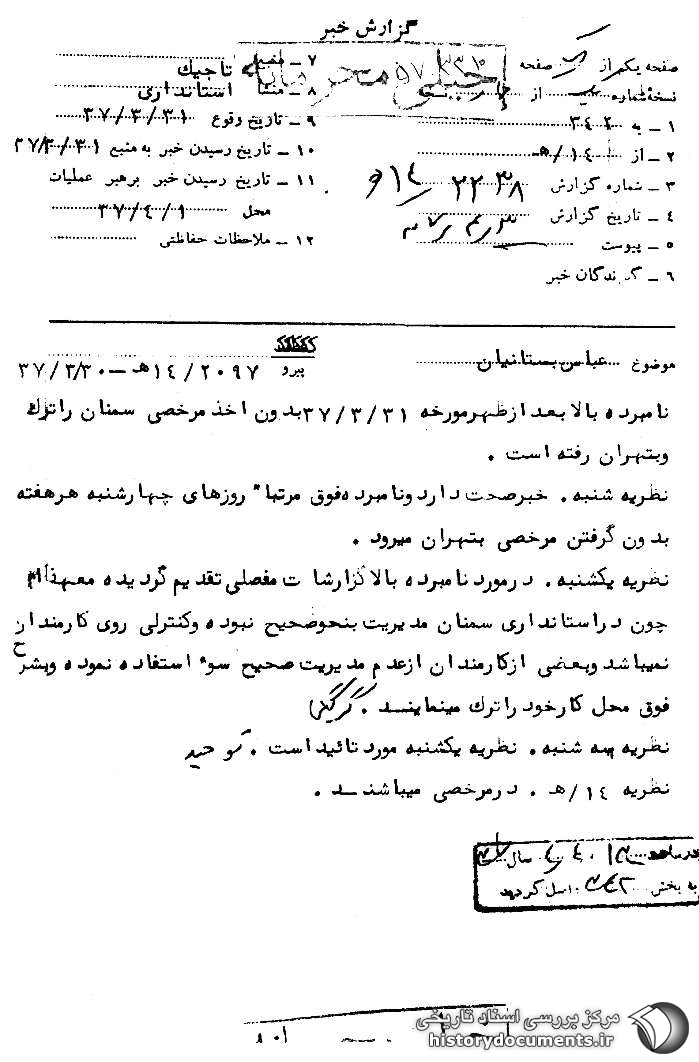 گزارش خبر
خیلی محرمانه
صفحه یکم از یک صفحه
نسخه شماره یک از چهار نسخه
۱ ـ به ۳٤۲
۲ ـ از ۱٤/هـ
۳ ـ شماره گزارش ۲۲۳۸/۱٤هـ
٤ ـ تاریخ گزارش ۳۷/٤/۳
۵ ـ پیوست
٦ ـ گیرندگان خبر
۷ ـ منبع تاجیك
۸ ـ منشأ استانداری
۹ ـ تاریخ وقوع ۳۷/۳/۳۱
۱۰ ـ تاریخ رسیدن خبر به منبع ۳۷/۳/۳۱
۱۱ ـ تاریخ رسیدن خبر برهبر عملیات
محل ۳۷/٤/۱
۱۲ ـ ملاحظات حفاظتی
موضوع عباس بستانیان
پیرو ۲۰۹۷/۱٤هـ -۳۷/۳/۳۰
نامبرده بالا بعد ازظهرمورخه ۳۷/۳/۳۱ بدون اخذ مرخصی سمنان راترك
وبتهران رفته است .
نظریه شنبه . خبرصحت دارد ونامبرده فوق مرتبا" روزهای چهارشنبه هرهفته
بدون گرفتن مرخصی بتهران میرود .
نظریه یکشنبه . درمورد نامبرده بالا گزارشات مفصلی تقدیم گردیده معهذا
چون دراستانداری سمنان مدیریت بنحوصحیح نبوده وکنترلی روی کارمندان
نمیباشد وبعضی ازکارمندان ازعدم مدیریت صحیح سوء استفاده نموده وبشرح
فوق محل کارخود راترك مینمایند .
نظریه سه شنبه . نظریه یکشنبه مورد تائید است . توحید
نظریه ۱٤/هـ . درمرخصی میباشند .
سال
به بخش ۳٤۲ ارسال گردید
مرکز بررسی اسناد تاریخی
historydocuments.ir